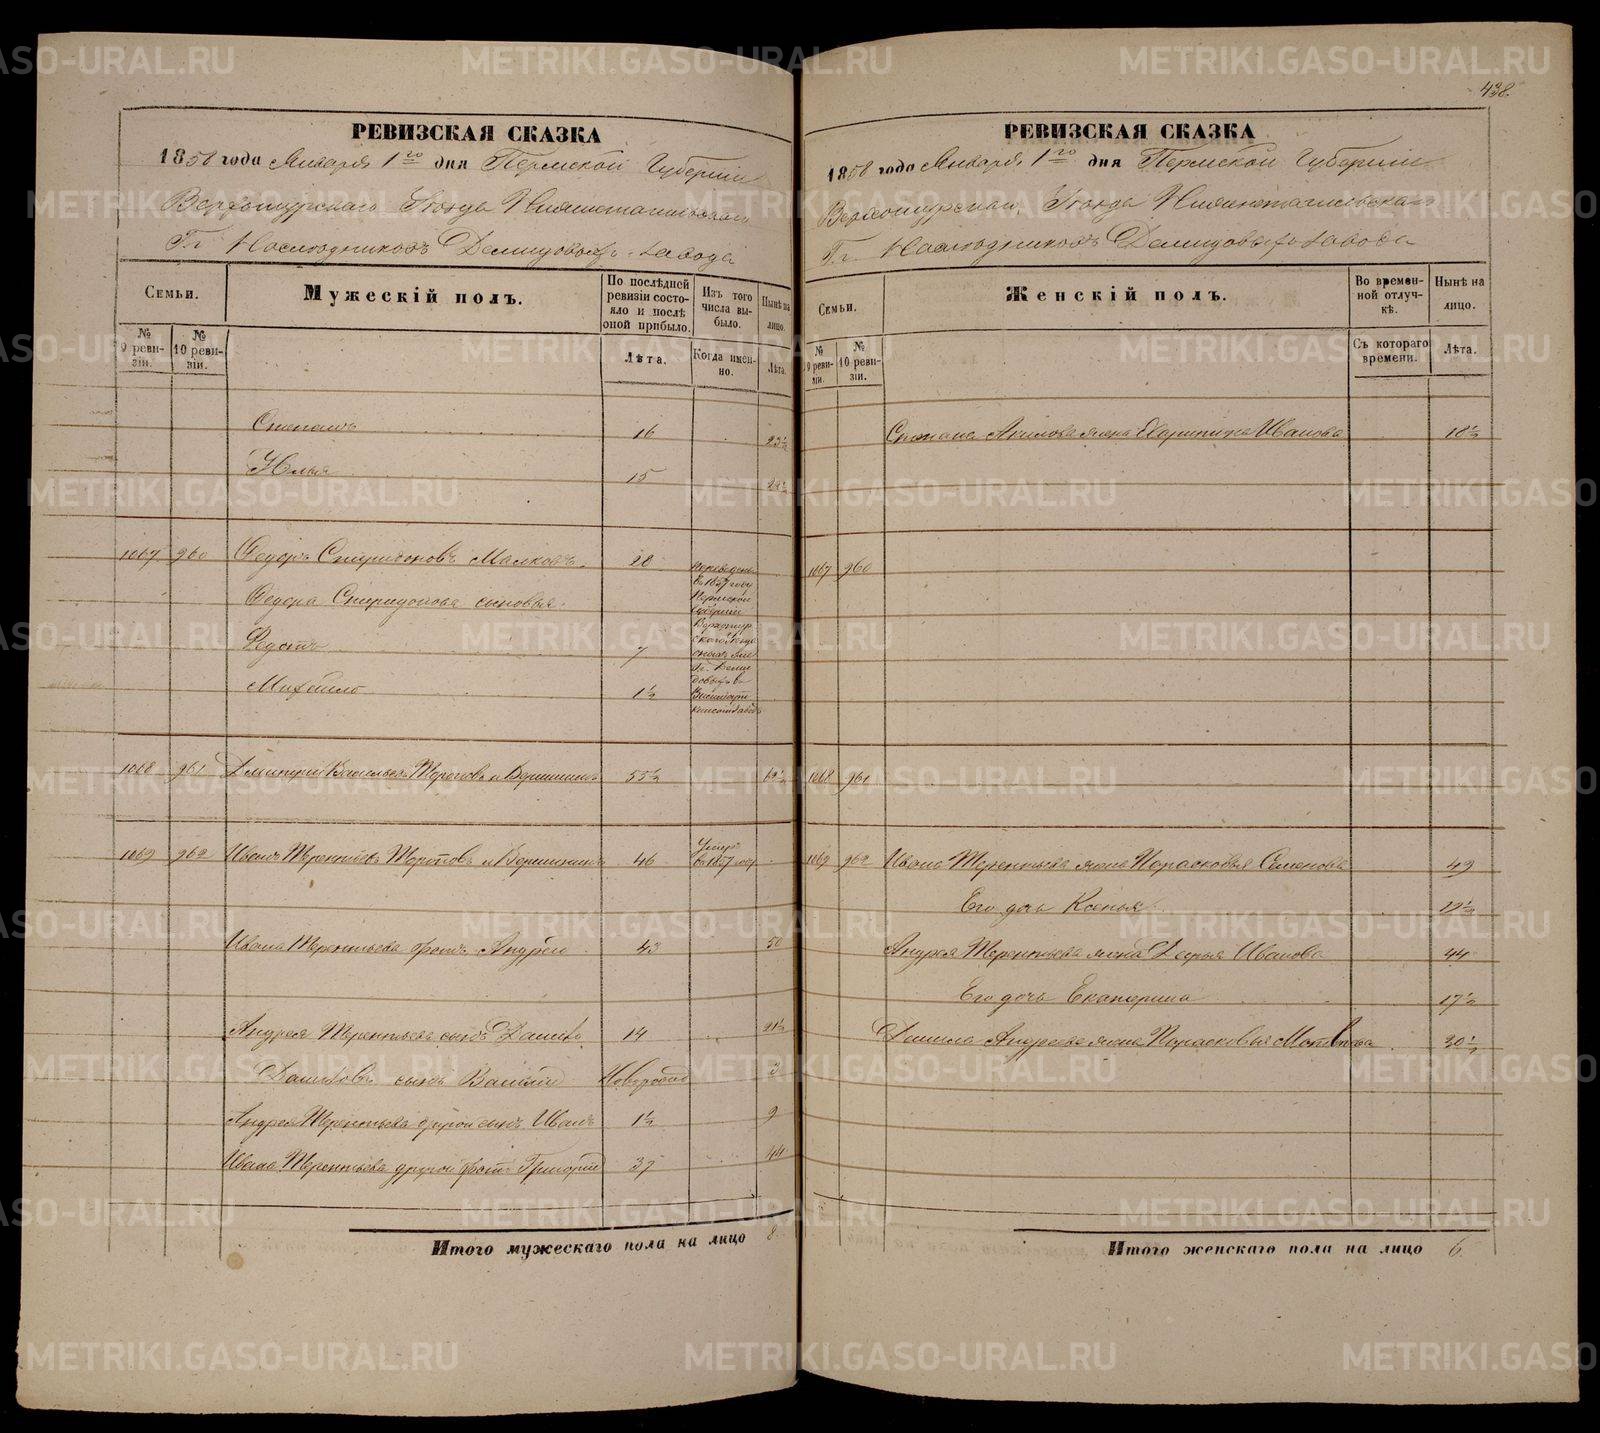 438.
РЕВИЗСКАЯ СКАЗКА
1858 года Января 1го дня Пермской Губерніи
Верхотурскаго Уезда Нижнетагильскаго
Гг. Наследниковъ Демидовыхъ завода
Семьи.
Мужескій полъ.
По послѣдней ревизіи состояло и послѣ оной прибыло.
Изъ того числа выбыло.
Нынѣ на лицо.
№ 9 ревизіи.
№ 10 ревизіи.
Лѣта.
Когда именно.
Лѣта.
Степанъ 16 23½
Илья 15 22½
1067 960 Федоръ Спиридоновъ Малковъ 28
Федора Спиридонова сыновья:
7
Михайло 1½
въ 1857 году Пермской Губерніи
1068 961 Дмитрій Васильевъ Вершининъ 55½
1069 962 Иванъ Терентьевъ и Вершининъ 46 Умеръ въ 1857 году
Ивана Терентьева братъ Андрей 43 50
Андрея Терентьева сынъ Данило 14 21½
Даниловъ сынъ 3
Андрея Терентьева другой сынъ Иванъ 1½ 9
Ивана Терентьева другой братъ Григорій 37 44
Итого мужескаго пола на лицо 8.
РЕВИЗСКАЯ СКАЗКА
1858 года Января 1го дня Пермской Губерніи
Верхотурскаго Уезда Нижнетагильскаго
Гг. Наследниковъ Демидовыхъ завода
Семьи.
Женскій полъ.
Во временной отлучкѣ.
Нынѣ на лицо.
№ 9 ревизіи.
№ 10 ревизіи.
Съ котораго времени.
Лѣта.
Степана жена Иванова 18½
1067 960
1068 961
1069 962 Ивана Терентьева жена Парасковья Семенова 49
Его дочь Ксенья 19½
Андрея Терентьева жена Дарья Иванова 44
Его дочь Екатерина 17½
Данила Андреева жена Парасковья 20½
Итого женскаго пола на лицо 6.
METRIKI.GASO-URAL.RU